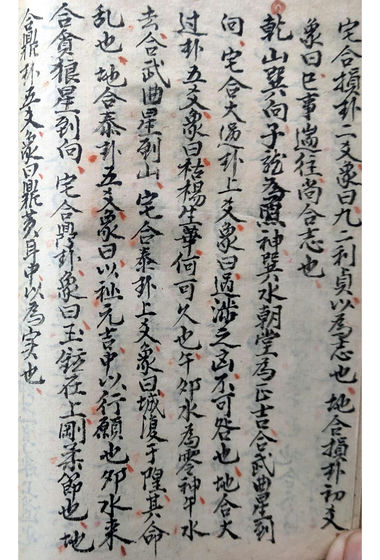 宅合損卦二爻象曰九二利貞以為志也地合損卦初爻
象曰巳事遄往尚合志也
乾山巽向子龍為 神巽水朝堂為正吉合武曲星到
向宅合大過卦上爻象曰過涉之凶不可咎也地合大
過卦五爻象曰枯楊生華何可久也午夘水為零神甲水
去合武曲星到山宅合泰卦上爻象曰城復于隍其命
乱也地合泰卦五爻象曰以祉元吉中以行願也夘水来
合貪狼星到向宅合鼎卦象曰玉鉉在上剛柔節也地
合鼎卦五爻象曰鼎黃耳中以為实也